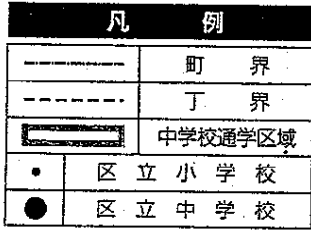 凡例
町界
丁界
中学校通学区域
区立小学校
区立中学校